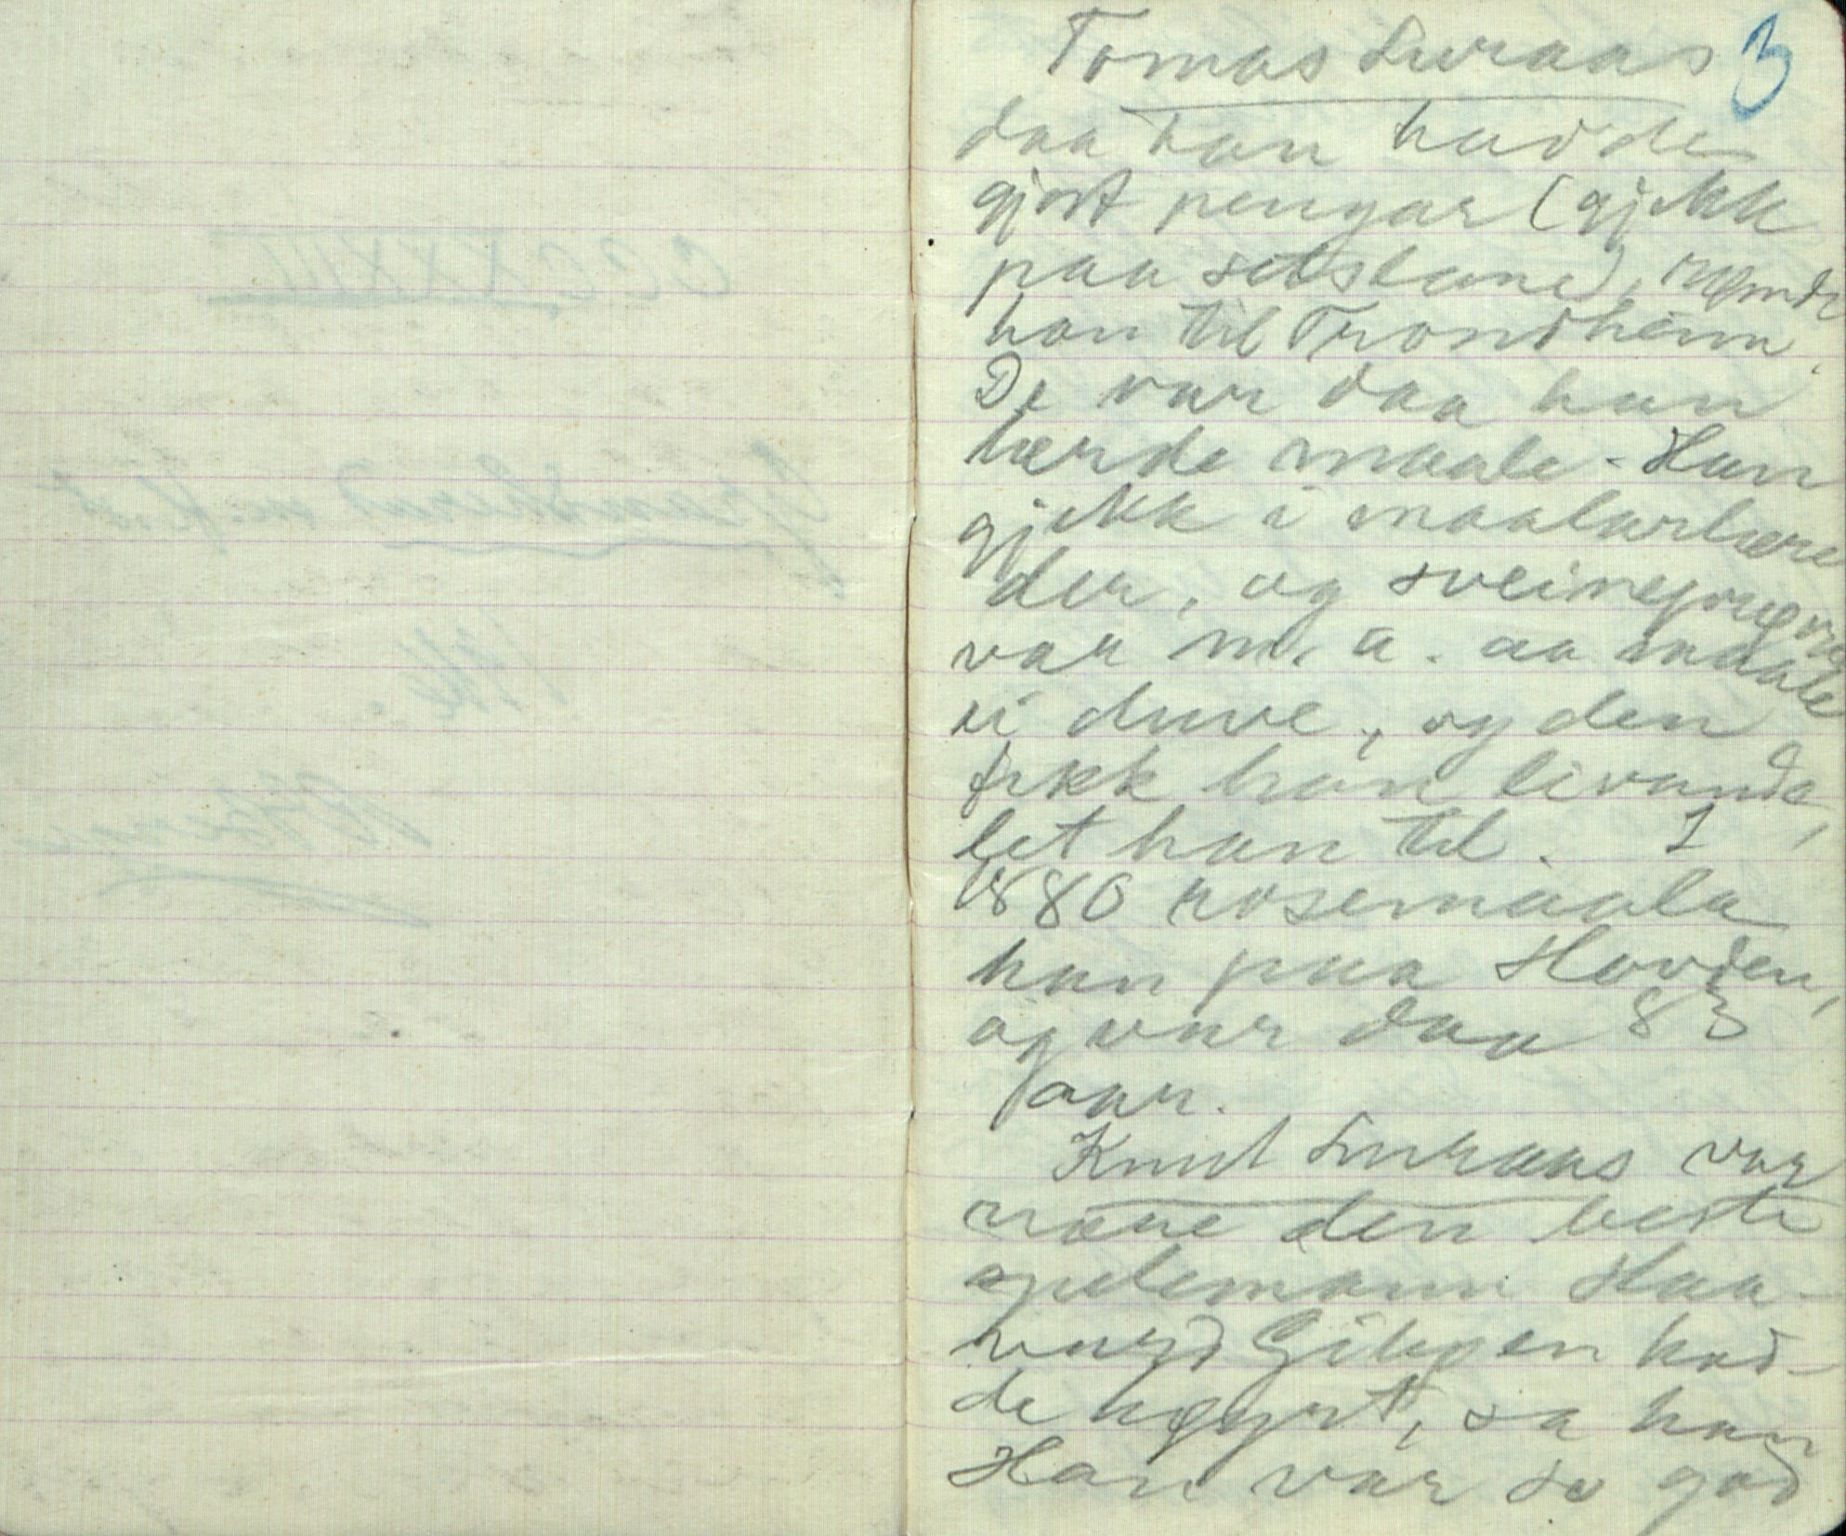 3
Tomas Luraas
daa han hadde
gjort pengar (gjekk
paa setslane), rømde
han til Trondheim,
De var daa han
lærde maale. Han
gjekk i maalarlære
der, og sveineprøva
var m. a. aa maale
ei duve, og den
fekk han livande,
let han til. I
1880 rosemaala
han paa Hovden,
og var daa 83
aar.
Knut Luraas var
næve den beste
spelemann Haa-
vard Gibøen had-
de høyrt, sa han
Han var so god